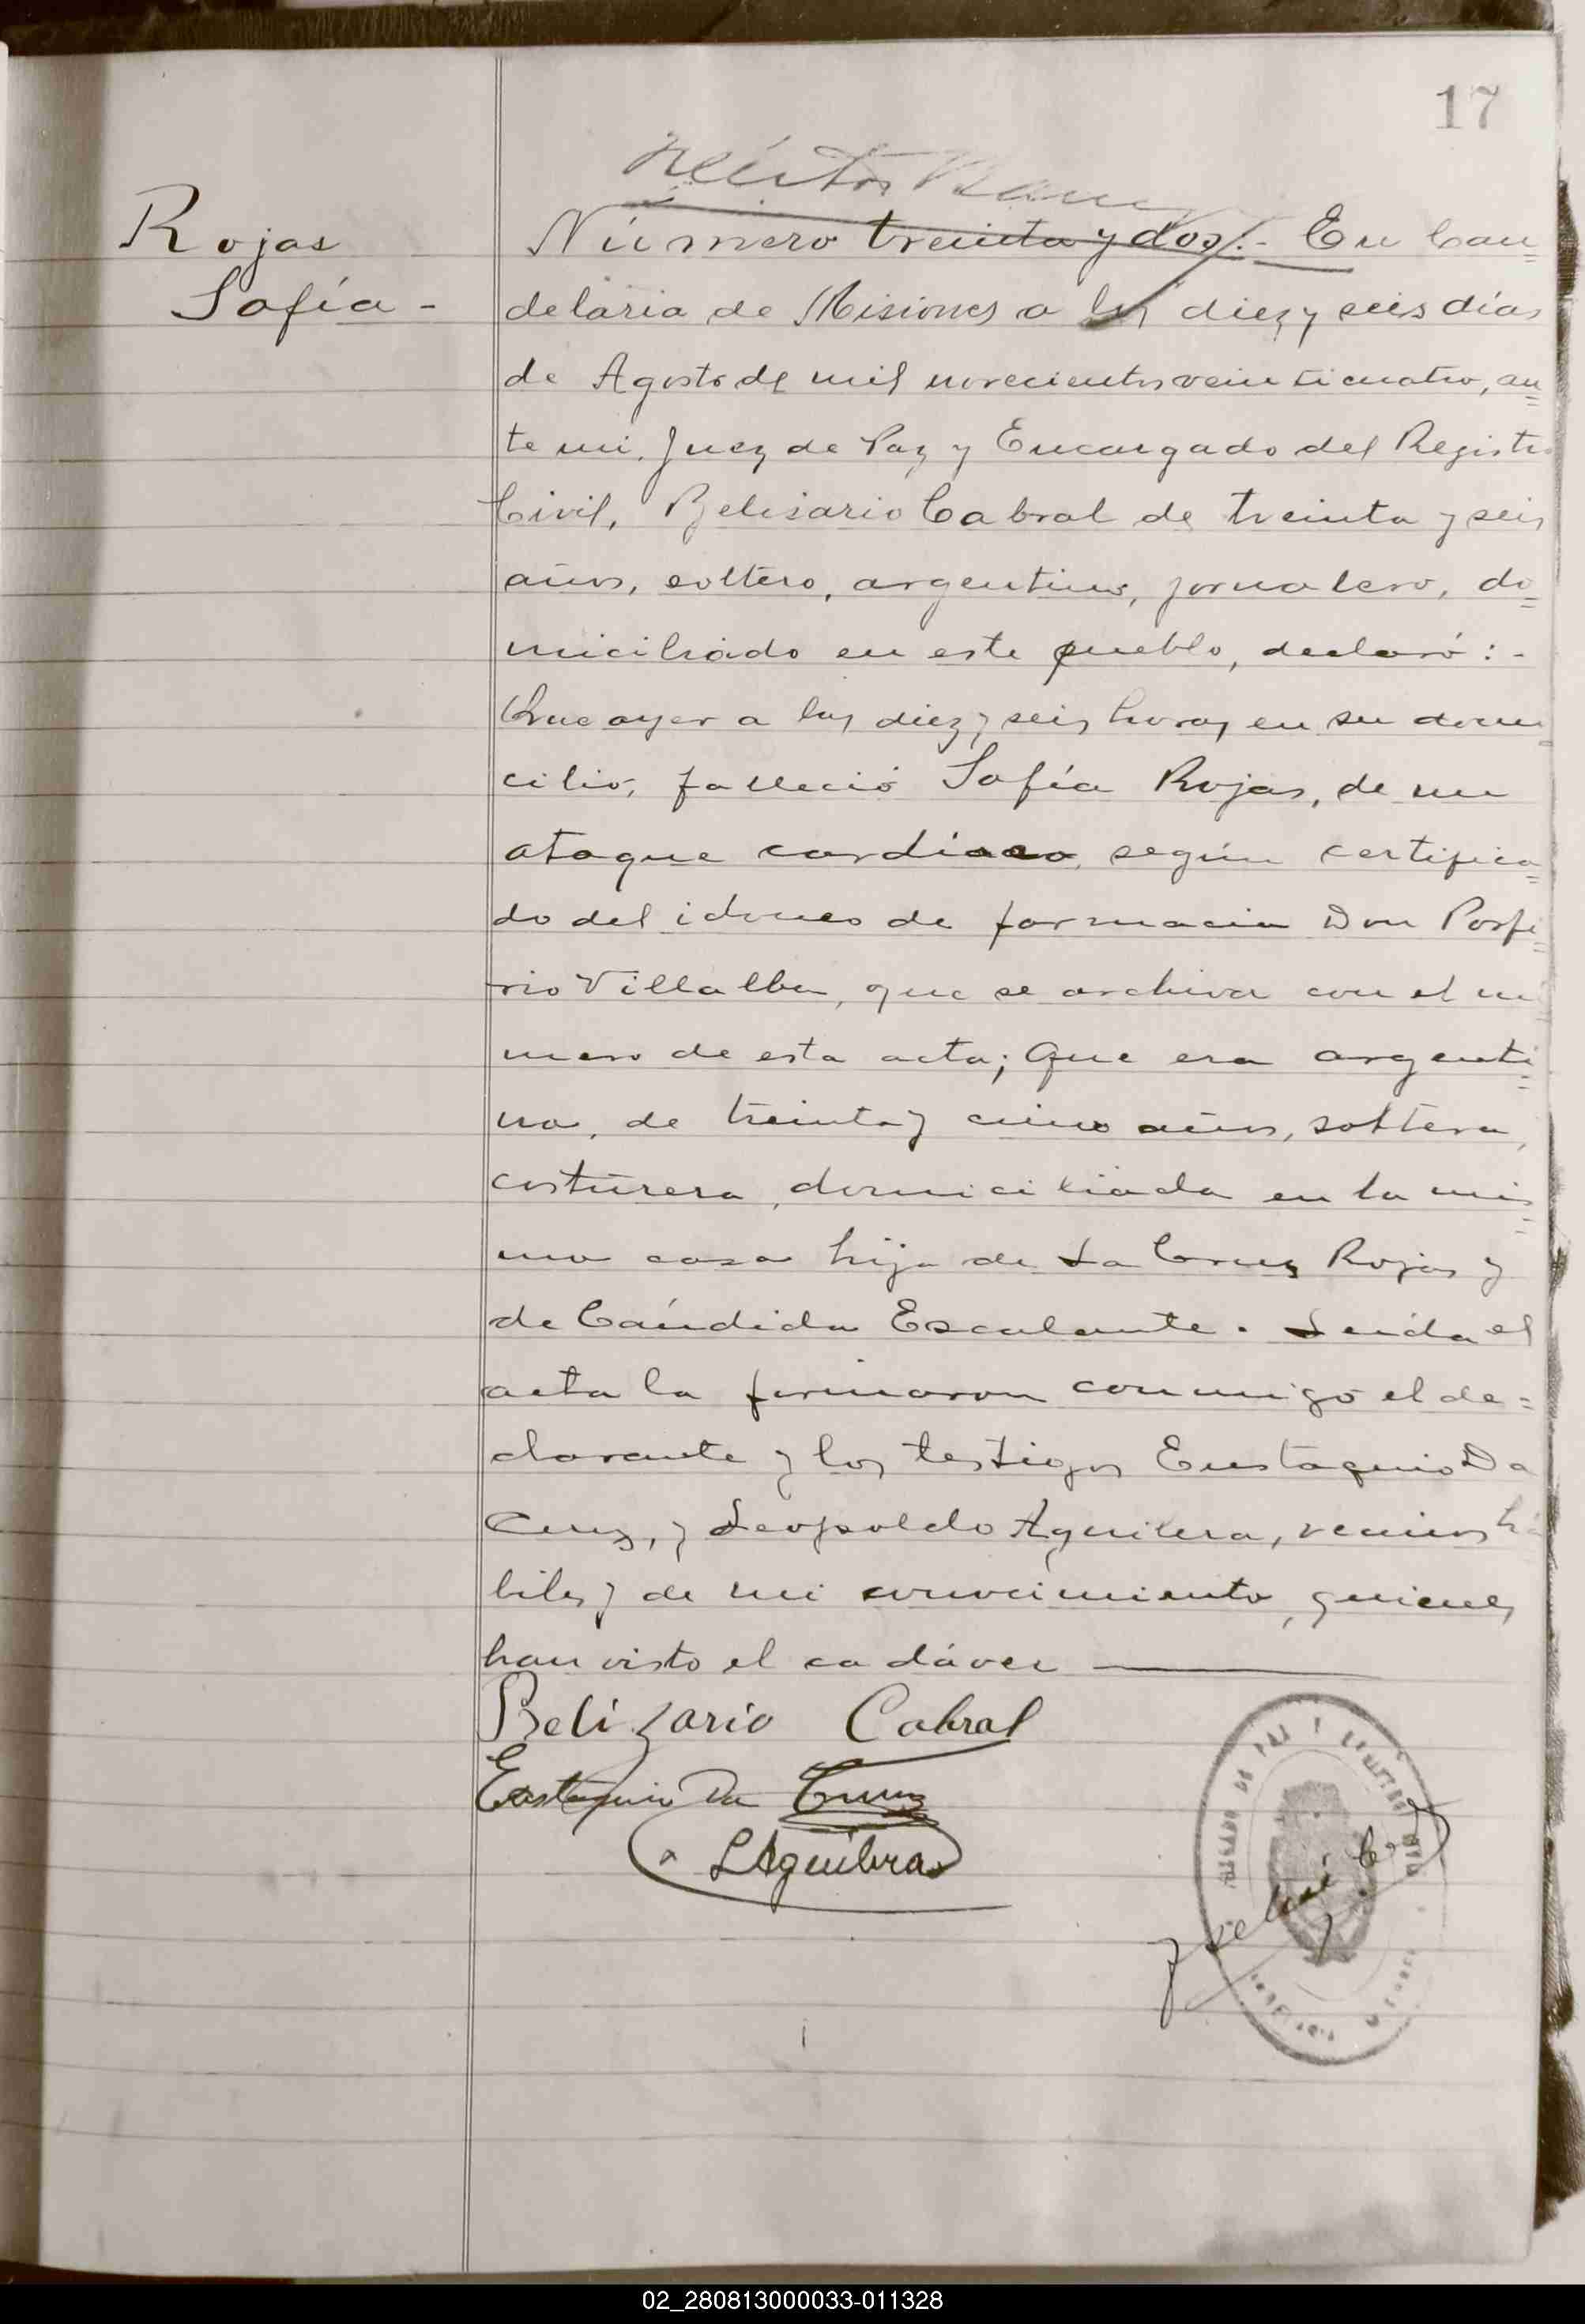 17
Rojas
Sofía -
Número treinta y dos.- En Can=
delaria de Misiones a los diez y seis días
de Agosto de mil novecientos veinticuatro, an=
te mi, Juez de Paz y Encargado del Registro
Civil, Belisario Cabral de treinta y seis
años, soltero, argentino, jornalero, do=
miciliado en este pueblo, declaró: -
Que ayer a las diez y seis horas en su domi=
cilio, falleció Sofía Rojas, de un
ataque cardiaco, según certifica=
do del idoneo de farmacia Don Porfi=
rio Villalba, que se archiva con el nú=
mero de esta acta; Que era argenti=
na, de treinta y cinco años, soltera,
costurera, domiciliada en la mis=
ma casa hija de La Cruz Rojas y
de Cándida Escalante. Leída el
acta la firmaron conmigo el de=
clarante y los testigos Eustaquio Da
Cruz, y Leopoldo Aguilera, vecinos há
biles y de mi conocimiento, quienes
han visto el cadáver
Belizario Cabral
Eustaquio Da Cruz
LAguilera
JUZGADO DE PAZ Y
02_280813000033-011328